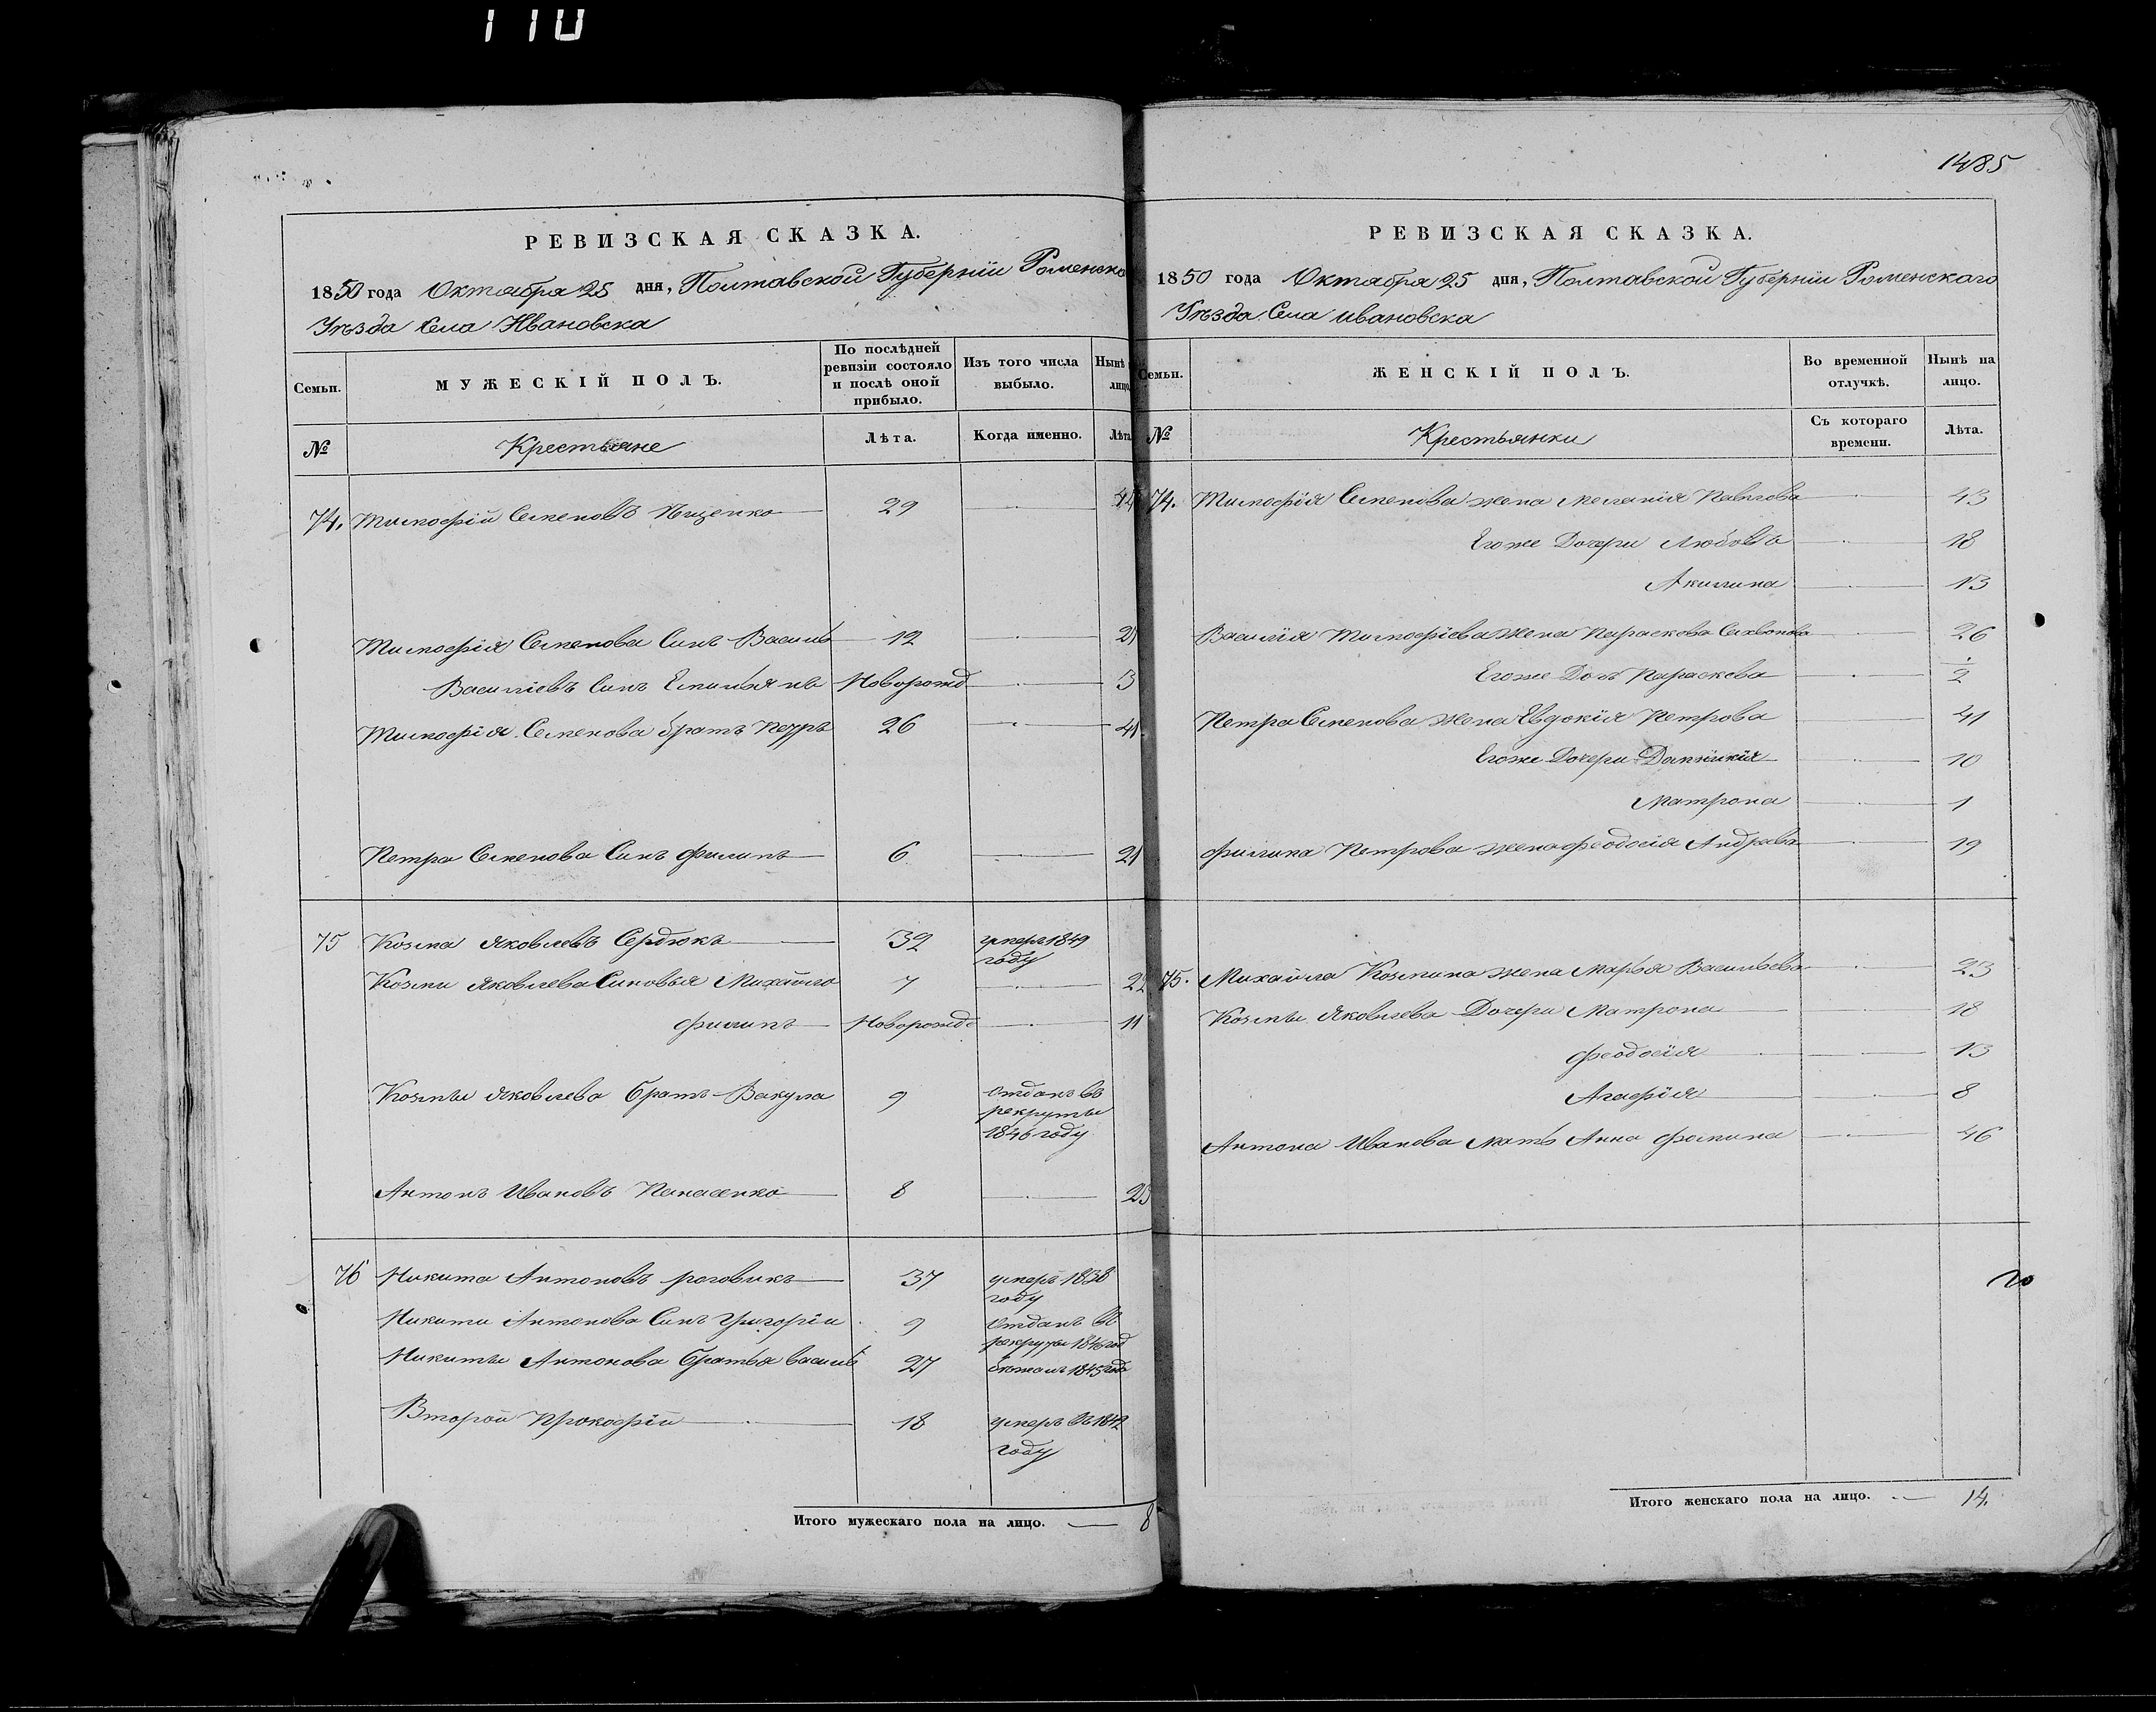 110
РЕВИЗСКАЯ СКАЗКА.
1850 года Октября 25 дня, Полтавской Губерніи Роменска
Уѣзда Села Ивановска
Семьи.
МУЖЕСКІЙ ПОЛЪ.
По послѣдней ревизіи состояло и послѣ оной прибыло.
Изъ того числа выбыло.
Нынѣ
лицо
№
Крестьяне
Лѣта.
Когда именно.
Лѣта
74. Тимофій Семеновъ Ищенко 29 44
Тимофія Семенова Сынъ Василь 12 27
Василіевъ Сынъ Емильянъ Новорожд 3
Тимофія Семенова братъ Петръ 26 41
Петра Семенова Сынъ Филипъ 6 21
75 Козма Яковлевъ Сердюкъ 32 умеръ 1849
году
Козми Яковлева Сыновья Михайло 7 22
Филипъ Новорожд 11
Козмы Яковлева Братъ Вакула 9 Отданъ въ
рекруты
1846 году
Антонъ Ивановъ Панасенко 8 23
76 Никита Антоновъ роговикъ 37 умеръ 1838
году
Никити Антонова Сынъ Григорій 9 Отданъ въ
рекруты 1846 год
Никиты Антонова Братья василь 27 бѣжалъ 1845 года
Второй Прокофій 18 умеръ въ 1842
году
Итого мужескаго пола на лицо. 8
1485
РЕВИЗСКАЯ СКАЗКА.
1850 года Октября 25 дня, Полтавской Губерніи Роменскаго
Уѣзда Села ивановска
Семьи.
ЖЕНСКІЙ ПОЛЪ.
Во временной отлучкѣ.
Нынѣ на лицо.
№
Крестьянки
Съ котораго времени.
Лѣта.
74. Тимофія Семенова жена меланія Павлова 43
Егоже Дочери Любовь 18
Акилина 13
Василія Тимофіева жена Параскова 26
Егоже Дочь Параскова 2
Петра Семенова жена Евдокія Петрова 41
Егоже Дочери 10
Матрона 1
Филипа Петрова жена феодосія Андреева 19
75. Михайла Козмина жена Марья Васильева 23
Козмы Яковлева Дочери Матрона 18
феодосія 13
Агафія 8
Антона Иванова мать Анна фомина 46
Итого женскаго пола на лицо. 14.